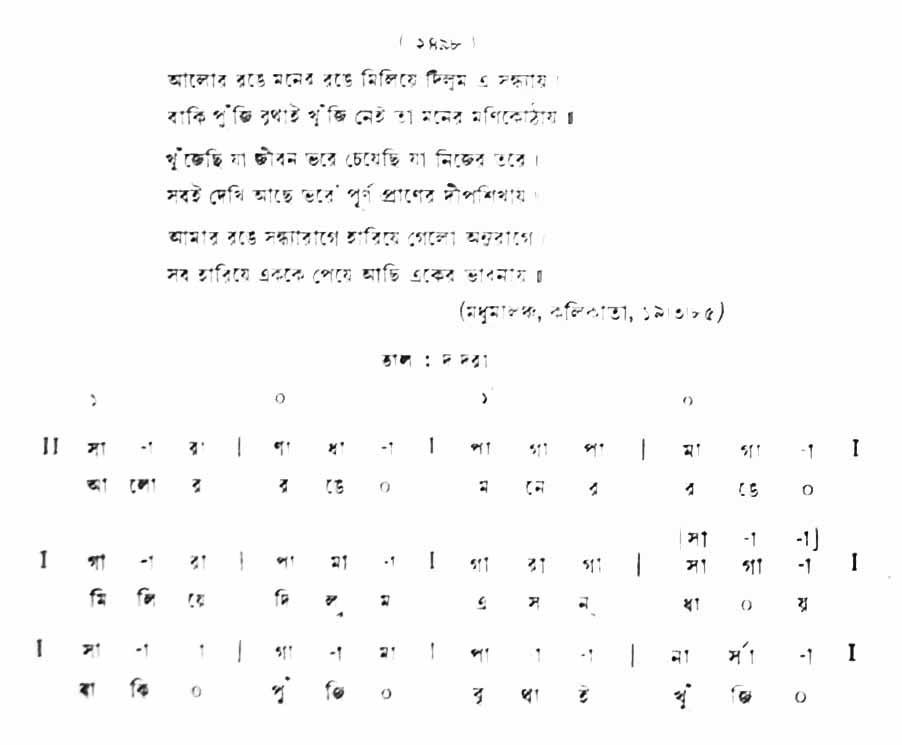 ( ২৪৯৮ )
আলোর রঙে মনের রঙে মিলিয়ে দিলুম এ সন্ধ্যায় ।
বাকি পুঁজি বৃথাই খুঁজি নেই তা মনের মণিকোঠায় ॥
খুঁজেছি যা জীবন ভরে চেয়েছি যা নিজের তরে ।
সবই দেখি আছে ভরে' পূর্ণ প্রাণের দীপশিখায় ।
আমার রঙে সন্ধ্যারাগে হারিয়ে গেলো অনুরাগে ।
সব হারিয়ে এককে পেয়ে আছি একের ভাবনায় ॥
(মধুমালঞ্চ, কলিকাতা, ১৯।৩।৮৫)
তাল : দাদরা
১ ০ ১ ০
II সা -া রা | ণা ধা -া I পা গা পা | মা গা -া I
আ লো র র ঙে ০ ম নে র র ঙে ০
[সা -া -া]
I গা -া রা | পা মা -া I গা রা গা | সা গা -া I
মি লি য়ে দি লু ম এ স ন্ ধা ০ য়
I সা -া া | গা -া মা | পা া -া | না র্সা -া I
বা কি ০ পুঁ জি ০ বৃ থা ই খুঁ জি ০